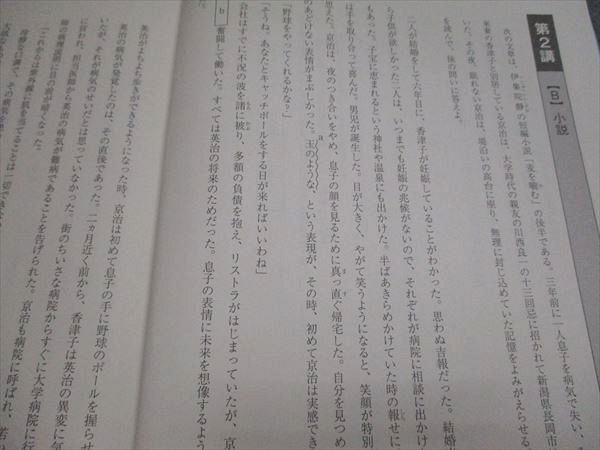 第2講
【B】小説
次の文章は、伊集院静の短編小説「麦を噛む」の後半である。三年前に一人息子を病気で失い、
来妻の香津子と別居している京治は、大学時代の親友の川西良一の十三回忌に招かれて新潟県長岡市
いた。その夜、眠れない京治は、堤沿いの高台に座り、無理に封じ込めていた記憶をよみがえらせる。
を読んで、後の問いに答えよ。
二人が結婚をして六年目に、香津子が妊娠していることがわかった。思わぬ吉報だった。結婚
ら子供が欲しかった二人は、いつまでも妊娠の兆候がないので、それぞれが病院に相談に出かけ
もあった。子宝に恵まれるという神社や温泉にも出かけた。半ばあきらめかけていた時の報せに
は手を取り合って喜んだ。男児が誕生した。目が大きく、やがて笑うようになると、笑顔が特別
思えた。京治は、夜のつき合いをやめ、息子の顔を見るために真っ直ぐ帰宅した。自分を見つめ
のあどけない表情がまぶしかった。玉のような、という表現が、その時、初めて京治は実感でき
a
「野球をやってくれるかな?」
「そうね、あなたとキャッチボールをする日が来ればいいわね」
会社はすでに不況の波を諸に被り、多額の負債を抱え、リストラがはじまっていたが、京
b 奮闘して働いた。すべては英治の将来のためだった。息子の表情に未来を想像するよう
英治がよちよち歩きができるようになった時、京治は初めて息子の手に野球のボールを握らせ
英治の病気が発覚したのは、その直後であった。二ヵ月近く前から、香津子は英治の異変に気
いたが、それが病気のせいだとは思っていなかった。街のちいさな病院からすぐに大学病院に行
に言われ、担当医師から英治の病気が難病であることを告げられた。京治も病院に呼ばれ、若い